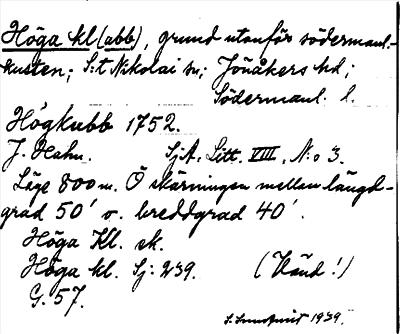 Höga kl(abb), grund utanför södermanl.-
kusten; S:t Nikolai sn; Jönåkers hd;
Södermanl. l.
Högkubb 1752.
J. Hahn. SjA, Litt. VIII, N:o 3.
Läge 800 m. Ö skärningen mellan längd-
grad 50' o. breddgrad 40'.
Höga Kl. ek.
Höga kl. Sj: 239. (Vänd!)
G. 57.
S. Sundqvist 1939.